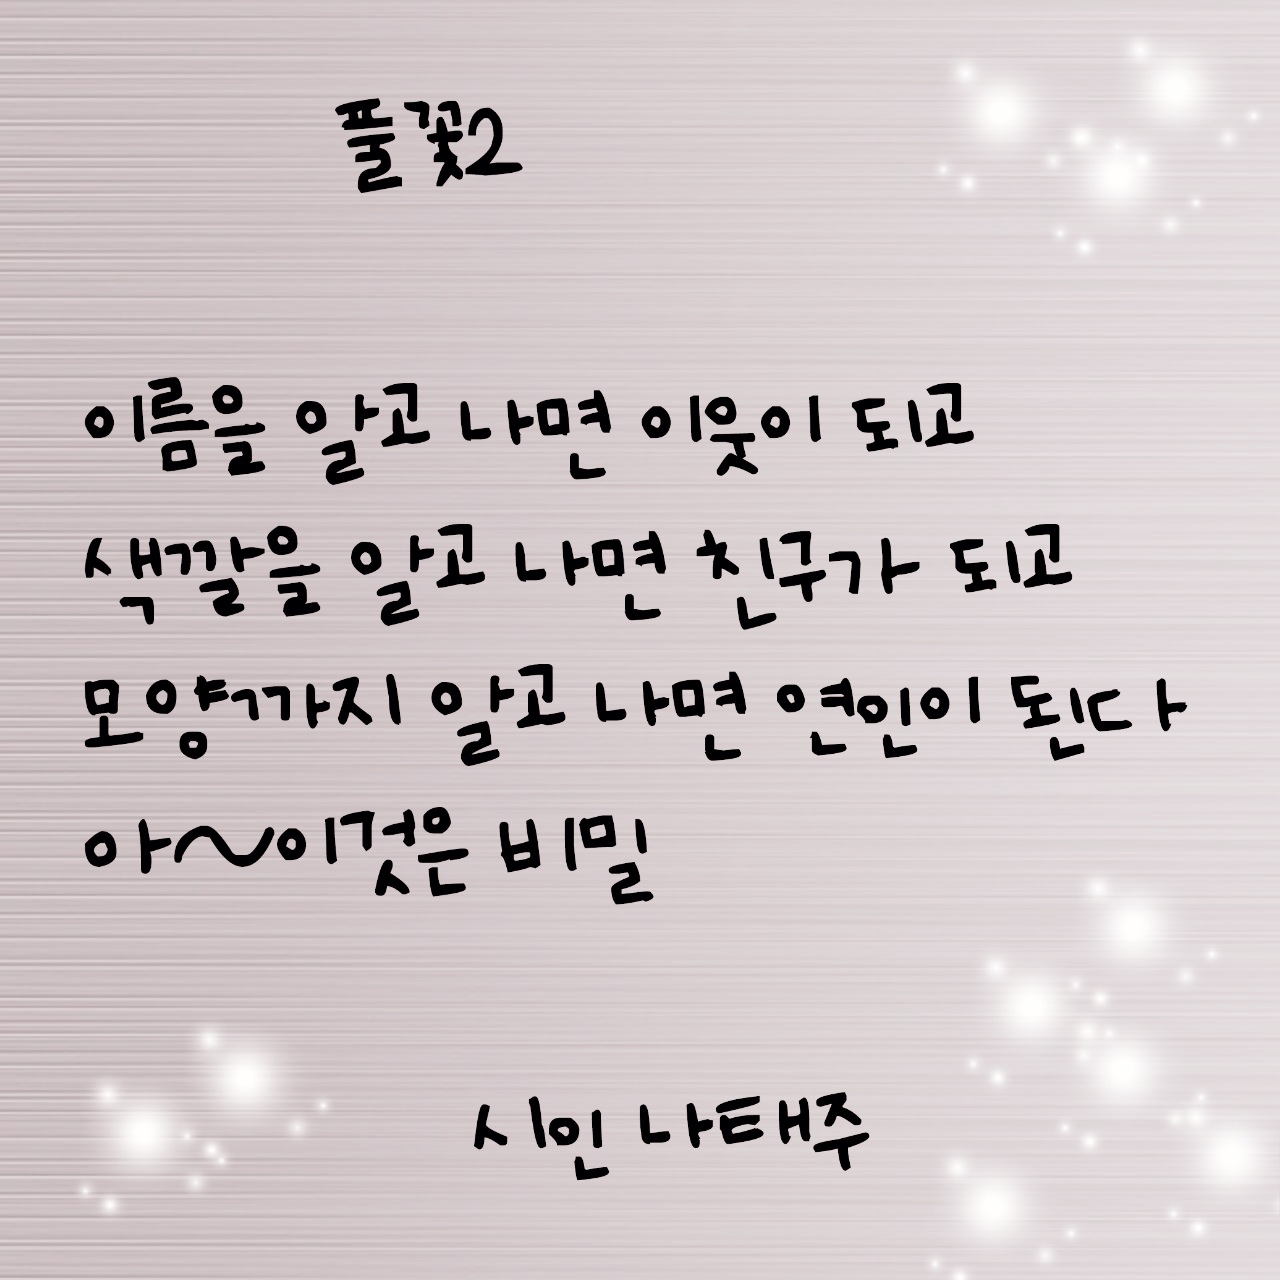 풀꽃2
이름을 알고 나면 이웃이 되고
색깔을 알고 나면 친구가 되고
모양까지 알고 나면 연인이 된다
아~이것은 비밀
시인 나태주